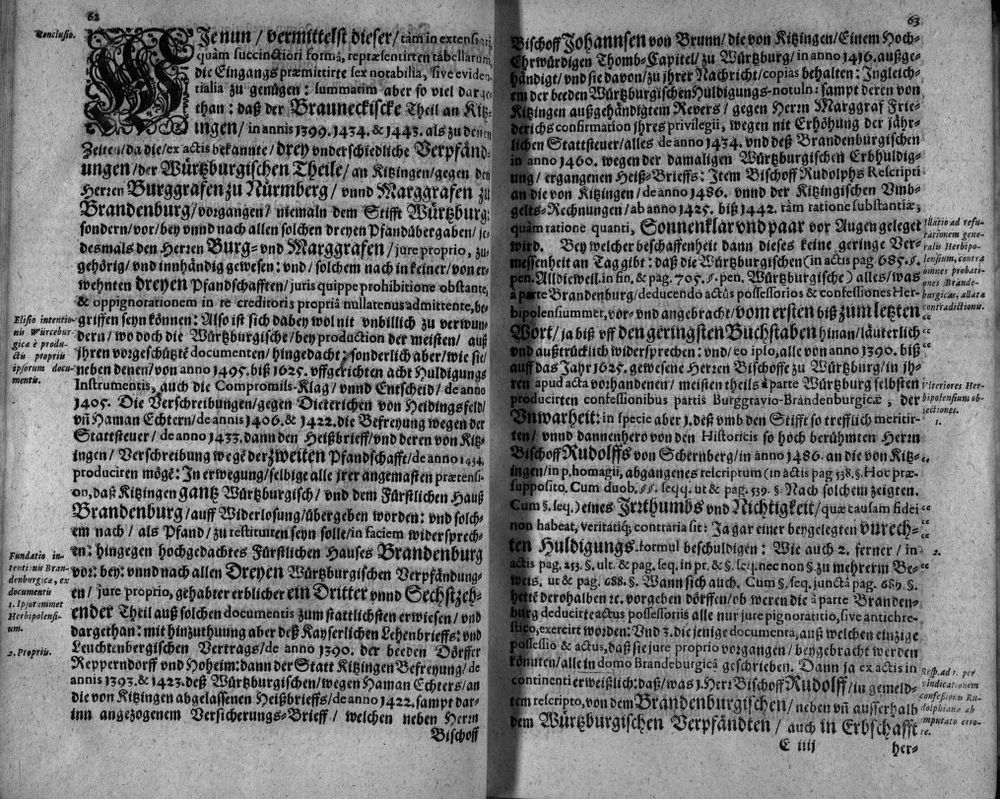 62
Conclusio.
WIe nun / vermittelst dieser / tàm in extensiori,
quàm succinctiori formâ, repræsentirten tabellarum,
die Eingangs præmittirte sex notabilia, sive eviden-
tialia zu genügen: summatim aber so viel darge-
than: daß der Brauneckische Theil an Kitz-
ingen / in annis 1399. 1434. & 1443. als zu denen
Zeiten / da die / ex actis bekante / drey vnderschiedliche Verpfänd-
ungen / der Würtzburgischen Theile / an Kitzingen / gegen den
Herren Burggrafen zu Nürmberg / vnnd Marggrafen zu
Brandenburg / vorgangen / niemaln dem Stifft Würtzburg:
sondern / vor / bey vnnd nach allen solchen dreyen Pfandsübergaben / je-
desmals den Herren Burg- vnd Marggrafen / jure proprio, zu-
gehörig / vnd innhändig gewesen: vnd / solchem nach in keiner / von er-
wehnten dreyen Pfandschafften / juris quippe prohibitione obstante,
& oppignorationem in re creditoris propriâ nullatenus admittente, be-
griffen seyn können: Also ist sich dabey wol nit vnbillich zu verwun-
dern / wo doch die Würtzburgische / bey production der meisten / auß
jhren vorgeschützte documenten / hingedacht: sonderlich aber / wie sie /
neben denen / von anno 1495. biß 1625. uffgerichten acht Huldigungs
Instrumentis, auch die Compromils-Klag / vnnd Entscheid / de anno
1405. Die Verschreibungen / gegen Dieterichen von Heidingsfeld /
vñ Haman Echtern / de annis 1406. & 1422. die Befreyung wegen der
Stattsteuer / de anno 1433. dann den Heißbrieff / vnd deren von Kitz-
ingen / Verschreibung wegē der zweiten Pfandschafft / de anno 1434.
produciren mögē: In erwegung / selbige alle jrer angemasten prætensi-
on, daß Kitzingen gantz Würtzburgisch / vnd dem Fürstlichen Hauß
Brandenburg / auff Widerlosung / übergeben worden: vnd solch-
em nach / als Pfand / zu restituiren seyn solle / in faciem widersprech-
en: hingegen hochgedachtes Fürstlichen Hauses Brandenburg
vor: bey: vnnd nach allen Dreyen Würtzburgischen Verpfändung-
en / jure proprio, gehabter erblicher ein Dritter vnnd Sechstzeh-
ender Theil auß solchen documentis zum stattlichsten erwiesen / vnd
dargethan: mit hinzuthuung aber deß Kayserlichen Lehenbrieffs: vnd
Leuchtenbergischen Vertrags / de anno 1390. der beeden Dörffer
Repperndorff vnd Hoheim: dann der Statt Kitzingen Befreyung / de
annis 1393. & 1423. deß Würtzburgischen / wegen Haman Echters / an
die von Kitzingen abgelassenen Heißbrieffs / de anno 1422. sampt dar-
inn angezogenem Versicherungs-Brieff / welchen neben Herrn
Bischoff
Elisio intentio-
nis Wircebur-
gicæ è produ-
ctis propriis
ipsorum docu-
mentis.
Fundatio in-
tentionis Bran-
denburgicæ, ex
documentis
1. Ipsorummet
Herbipolensi-
um.
2. Propriis.
63
Bischoff Johannsen von Brunn / die von Kitzingen / Einem Hoch-
Ehrwürdigen Thomb-Capitel / zu Würtzburg / in anno 1416. außge-
händigt / vnd sie davon / zu jhrer Nachricht / copias behalten: Ingleich-
em der beeden Würtzburgischen Huldigungs-notuln: sampt deren von
Kitzingen außgehändigtem Revers / gegen Herrn Marggraf Frie-
derichs confirmation jhres privilegii, wegen nit Erhöhung der jähr-
lichen Stattsteuer / alles de anno 1434. vnd deß Brandenburgischen
in anno 1460. wegen der damaligen Würtzburgischen Erbhuldig-
ung / ergangenen Heiß-Brieffs: Item Bischoff Rudolphs Rescripti
an die von Kitzingen / de anno 1486. vnnd der Kitzingischen Vmb-
gelts-Rechnungen / ab anno 1425. biß 1442. tàm ratione substantiæ,
quàm ratione quanti, Sonnenklar vnd paar vor Augen geleget
wird. Bey welcher beschaffenheit dann dieses keine geringe Ver-
messenheit an Tag gibt: daß die Würtzburgischen (in actis pag 685. §.
pen. Alldieweil. in fin. & pag. 705. §. pen. Würtzburgische) alles / was
à parte Brandenburg / deducendo actus possessorios & confessiones Her-
bipolensium met, vor- vnd angebracht / vom ersten biß zum letzten
Wort / ja biß vff den geringsten Buchstaben hinan / läuterlich
vnd außtrücklich widersprechen: vnd / eo ipso, alle von anno 1390. biß
auff das Jahr 1625. gewesene Herren Bischoffe zu Würtzburg / in jh-
ren apud acta vorhandenen / meisten theils à parte Würtzburg selbsten
producirten confessionibus partis Burggravio-Brandenburgicæ, der
Vnwarheit: in specie aber 1. deß vmb den Stifft so trefflich meritir-
ten / vnnd dannenhero von den Historicis so hoch berühmten Herrn
Bischoff Rudolffs von Schernberg / in anno 1486. an die von Kitz-
ingen / in p. homagii, abgangenes rescriptum (in actis pag 538. §. Hoc præ-
supposito. Cum duob. §§. seqq. ut & pag. 539. §. Nach solchem zeigten.
Cum §. seq.) eines Irrthumbs vnd Nichtigkeit / quæ causam fidei
non habeat, veritatiq; contraria sit: Ja gar einer beygelegten vnrech-
ten Huldigungs-formul beschuldigen: Wie auch 2. ferner / in
actis pag. 253. §. ult. & pag. seq. in pr. & §. seq. nec non §. zu mehrerm Be-
weis. ut & pag. 688. §. Wann sich auch. Cum §. seq. junctâ pag. 689. §.
hette derohalben ꝛc. vorgeben dörffen / ob weren die à parte Branden-
burg deducirte actus possessoriis alle nur jure pignoratitio, sive antichre-
stico, exercirt worden: Vnd 3. die jenige documenta, auß welchen einzige
possessio & actus, daß sie jure proprio vorgangen / beygebracht werden
könnten / alle in domo Brandeburgicâ geschrieben. Dann ja ex actis in
continenti erweißlich: daß / was 1. Herr Bischoff Rudolff / in gemeld-
tem rescripto, von dem Brandenburgischen / neben vñ ausserhalb
dem Würtzburgischen Verpfändten / auch in Erbschafft
C iiij
her-
Illatio ad refu-
tationem gene-
ralis Herbipo-
lensium, contra
omnes probati-
ones Brande-
burgicas, allatæ
contradictionis.
Vlteriores Her-
bipolensium ob-
jectiones.
1.
2.
Resp. ad 1. per
vindicationem
confessionis Ru-
dolphianæ ab
imputato erro-
re.